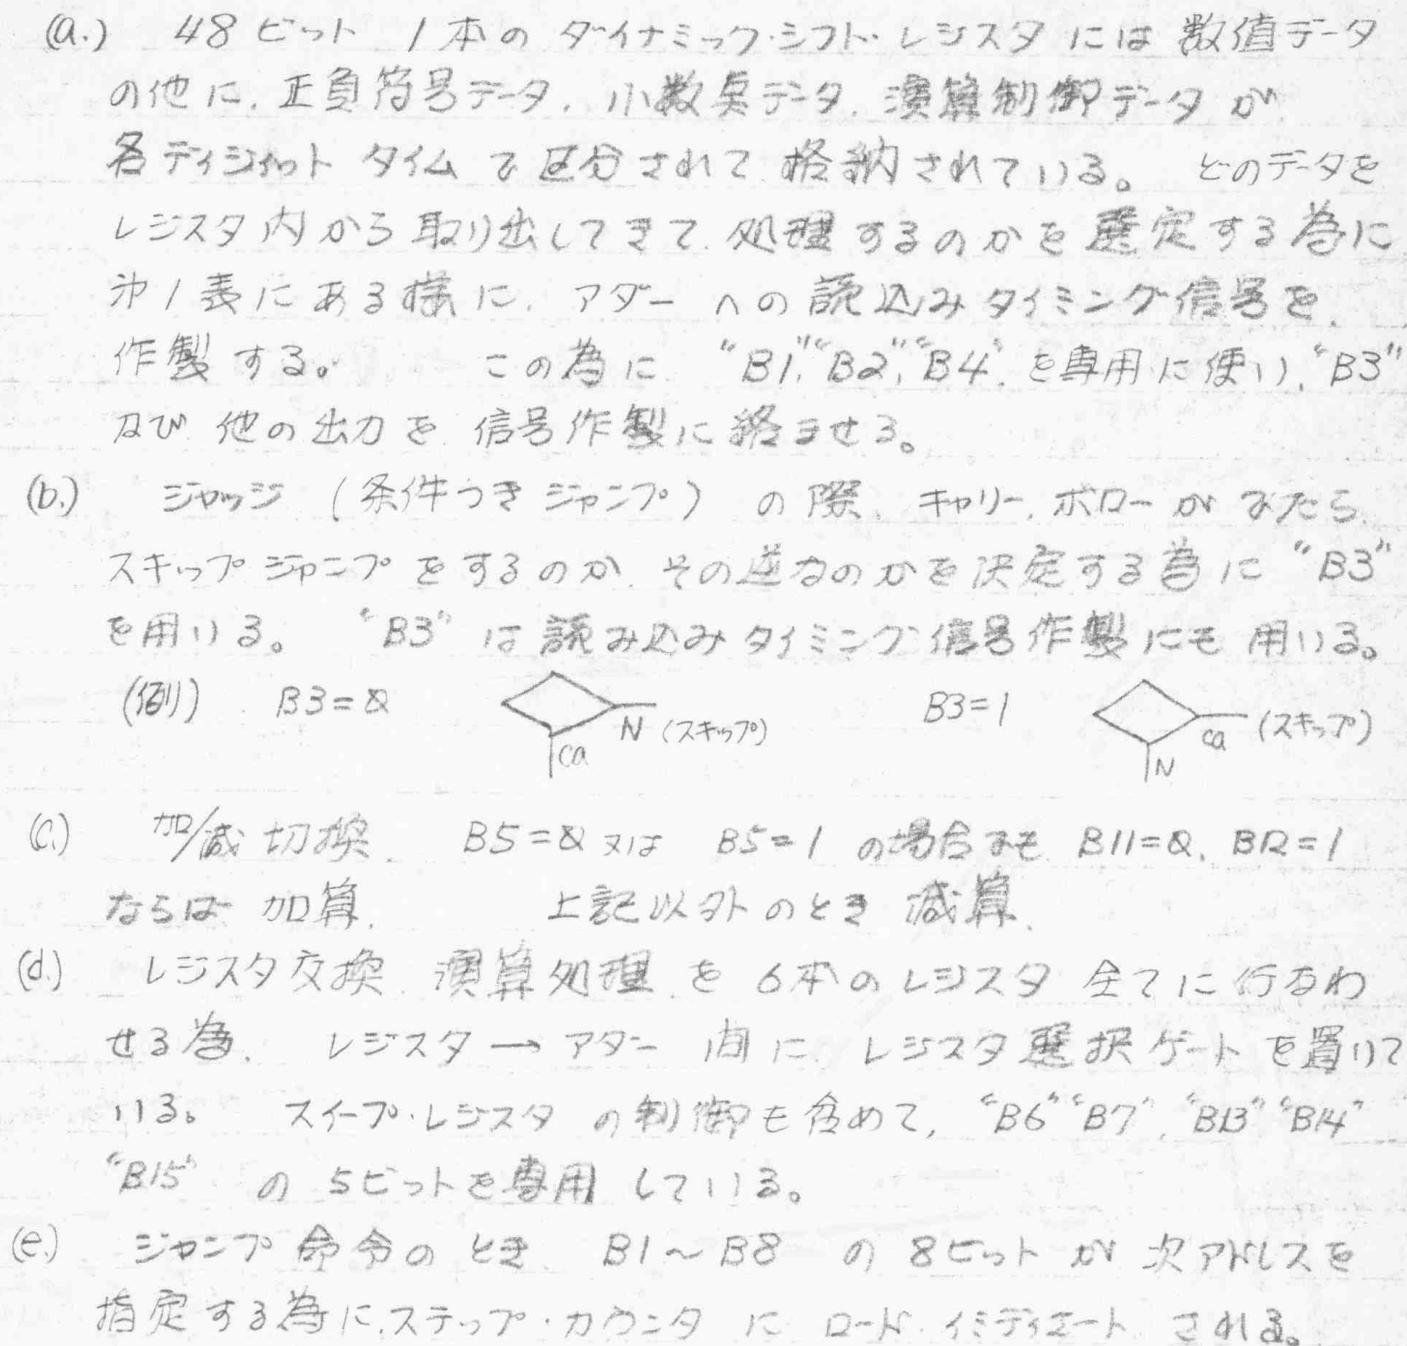 (a.) 48ビット 1本の ダイナミック・シフト・レジスタ には 数値データ
の他に、正負符号データ、小数点データ、演算制御データ が、
各ディジット タイム で 区分されて 格納されている。 どのデータを
レジスタ内から 取り出してきて、処理するのかを 選定する為に
第1表にある様に、アダー への 読込みタイミング信号を、
作製する。 この為に "B1","B2","B4" を専用に使い、"B3"
及び 他の出力を 信号作製に絡ませる。
(b.) ジャッジ (条件つきジャンプ) の際、キャリー、ボローが でたら、
スキップ ジャンプ をするのか、その逆なのかを決定する為に "B3"
を用いる。 "B3" は 読み込みタイミング信号作製にも 用いる。
(例) B3=0 N (スキップ) ca B3=1 ca (スキップ) N
(c.) 加/減 切換、 B5=0又は B5=1 の場合でも B11=0、B12=1
ならば 加算、 上記以外のとき 減算、
(d.) レジスタ交換、演算処理 を 6本のレジスタ 全てに行なわ
せる為、 レジスタ → アダー 間に、レジスタ選択ゲート を置いて
いる。 スイープ・レジスタ の制御も含めて、"B6" "B7", "B13" "B14"
"B15" の 5ビットを専用 している。
(e.) ジャンプ 命令のとき、 B1～B8 の 8ビット が 次アドレスを
指定する為に、ステップ・カウンタ に ロード・イミディエート される。